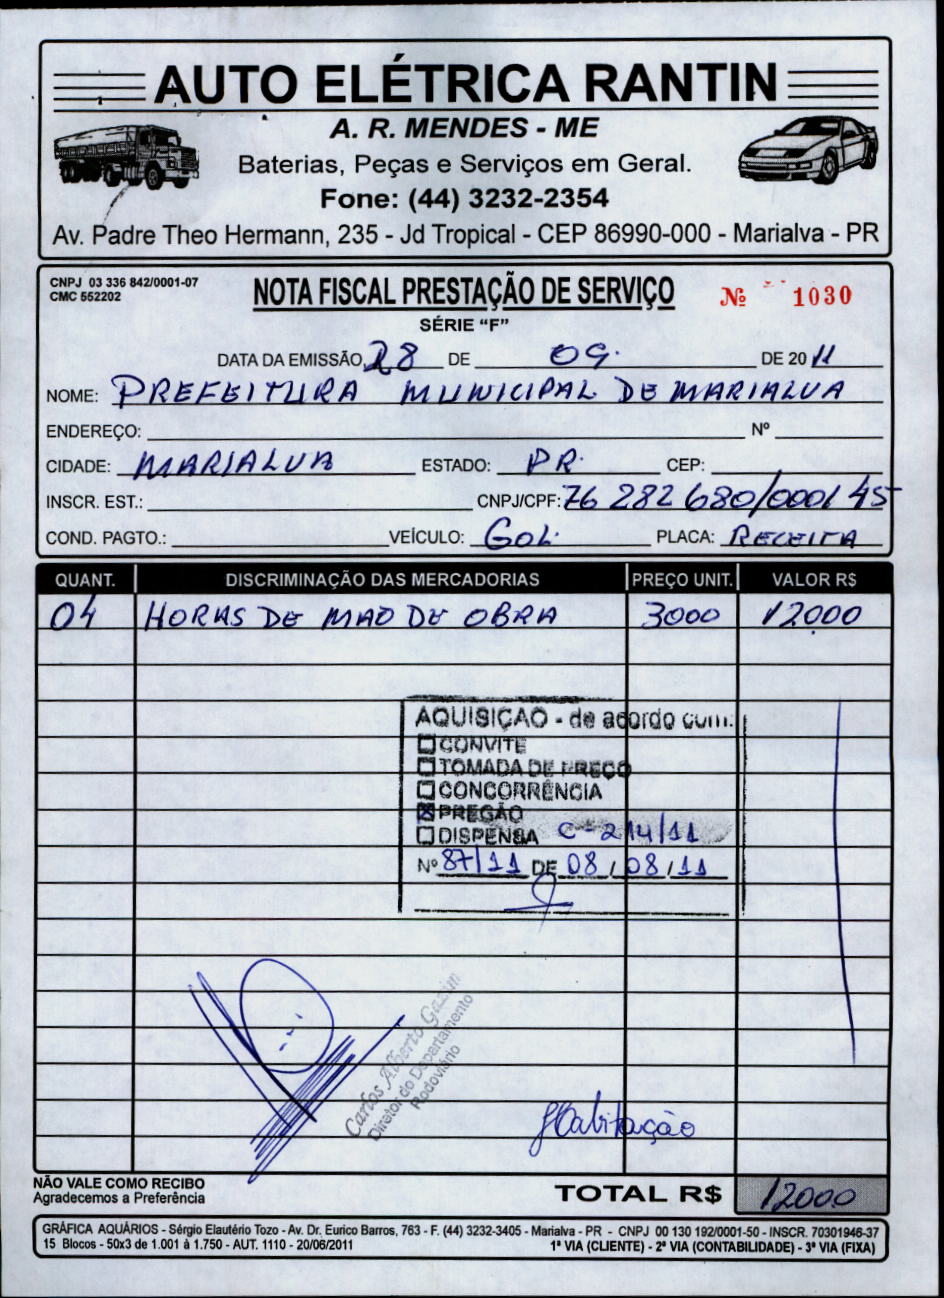 AUTO ELÉTRICA RANTIN
A. R. MENDES - ME
Baterias, Peças e Serviços em Geral.
Fone: (44) 3232-2354
Av. Padre Theo Hermann, 235 - Jd Tropical - CEP 86990-000 - Marialva - PR
CNPJ 03 336 842/0001-07
CMC 552202
NOTA FISCAL PRESTAÇÃO DE SERVIÇO
Nº 1030
SÉRIE "F"
DATA DA EMISSÃO 28 DE 09. DE 20 11
NOME: PREFEITURA MUNICIPAL DE MARIALVA
ENDEREÇO: Nº
CIDADE: MARIALVA ESTADO: PR. CEP:
INSCR. EST.: CNPJ/CPF: 76 282 680/0001 45
COND. PAGTO.: VEÍCULO: GOL. PLACA: RECEITA
QUANT. DISCRIMINAÇÃO DAS MERCADORIAS PREÇO UNIT. VALOR R$
04 HORAS DE MAO DE OBRA 3000 12000
AQUISIÇÃO - de acordo com:
CONVITE
TOMADA DE PREÇO
CONCORRÊNCIA
PREGÃO
DISPENSA C - 214/11
Nº 87/11 DE 08 / 08 / 11
Carlos Alberto Gazim
Diretor do Departamento
Rodoviário
Habitação
NÃO VALE COMO RECIBO
Agradecemos a Preferência
TOTAL R$ 12000
GRÁFICA AQUÁRIOS - Sérgio Elautério Tozo - Av. Dr. Eurico Barros, 763 - F. (44) 3232-3405 - Marialva - PR - CNPJ 00 130 192/0001-50 - INSCR. 70301946-37
15 Blocos - 50x3 de 1.001 à 1.750 - AUT. 1110 - 20/06/2011 1ª VIA (CLIENTE) - 2ª VIA (CONTABILIDADE) - 3ª VIA (FIXA)